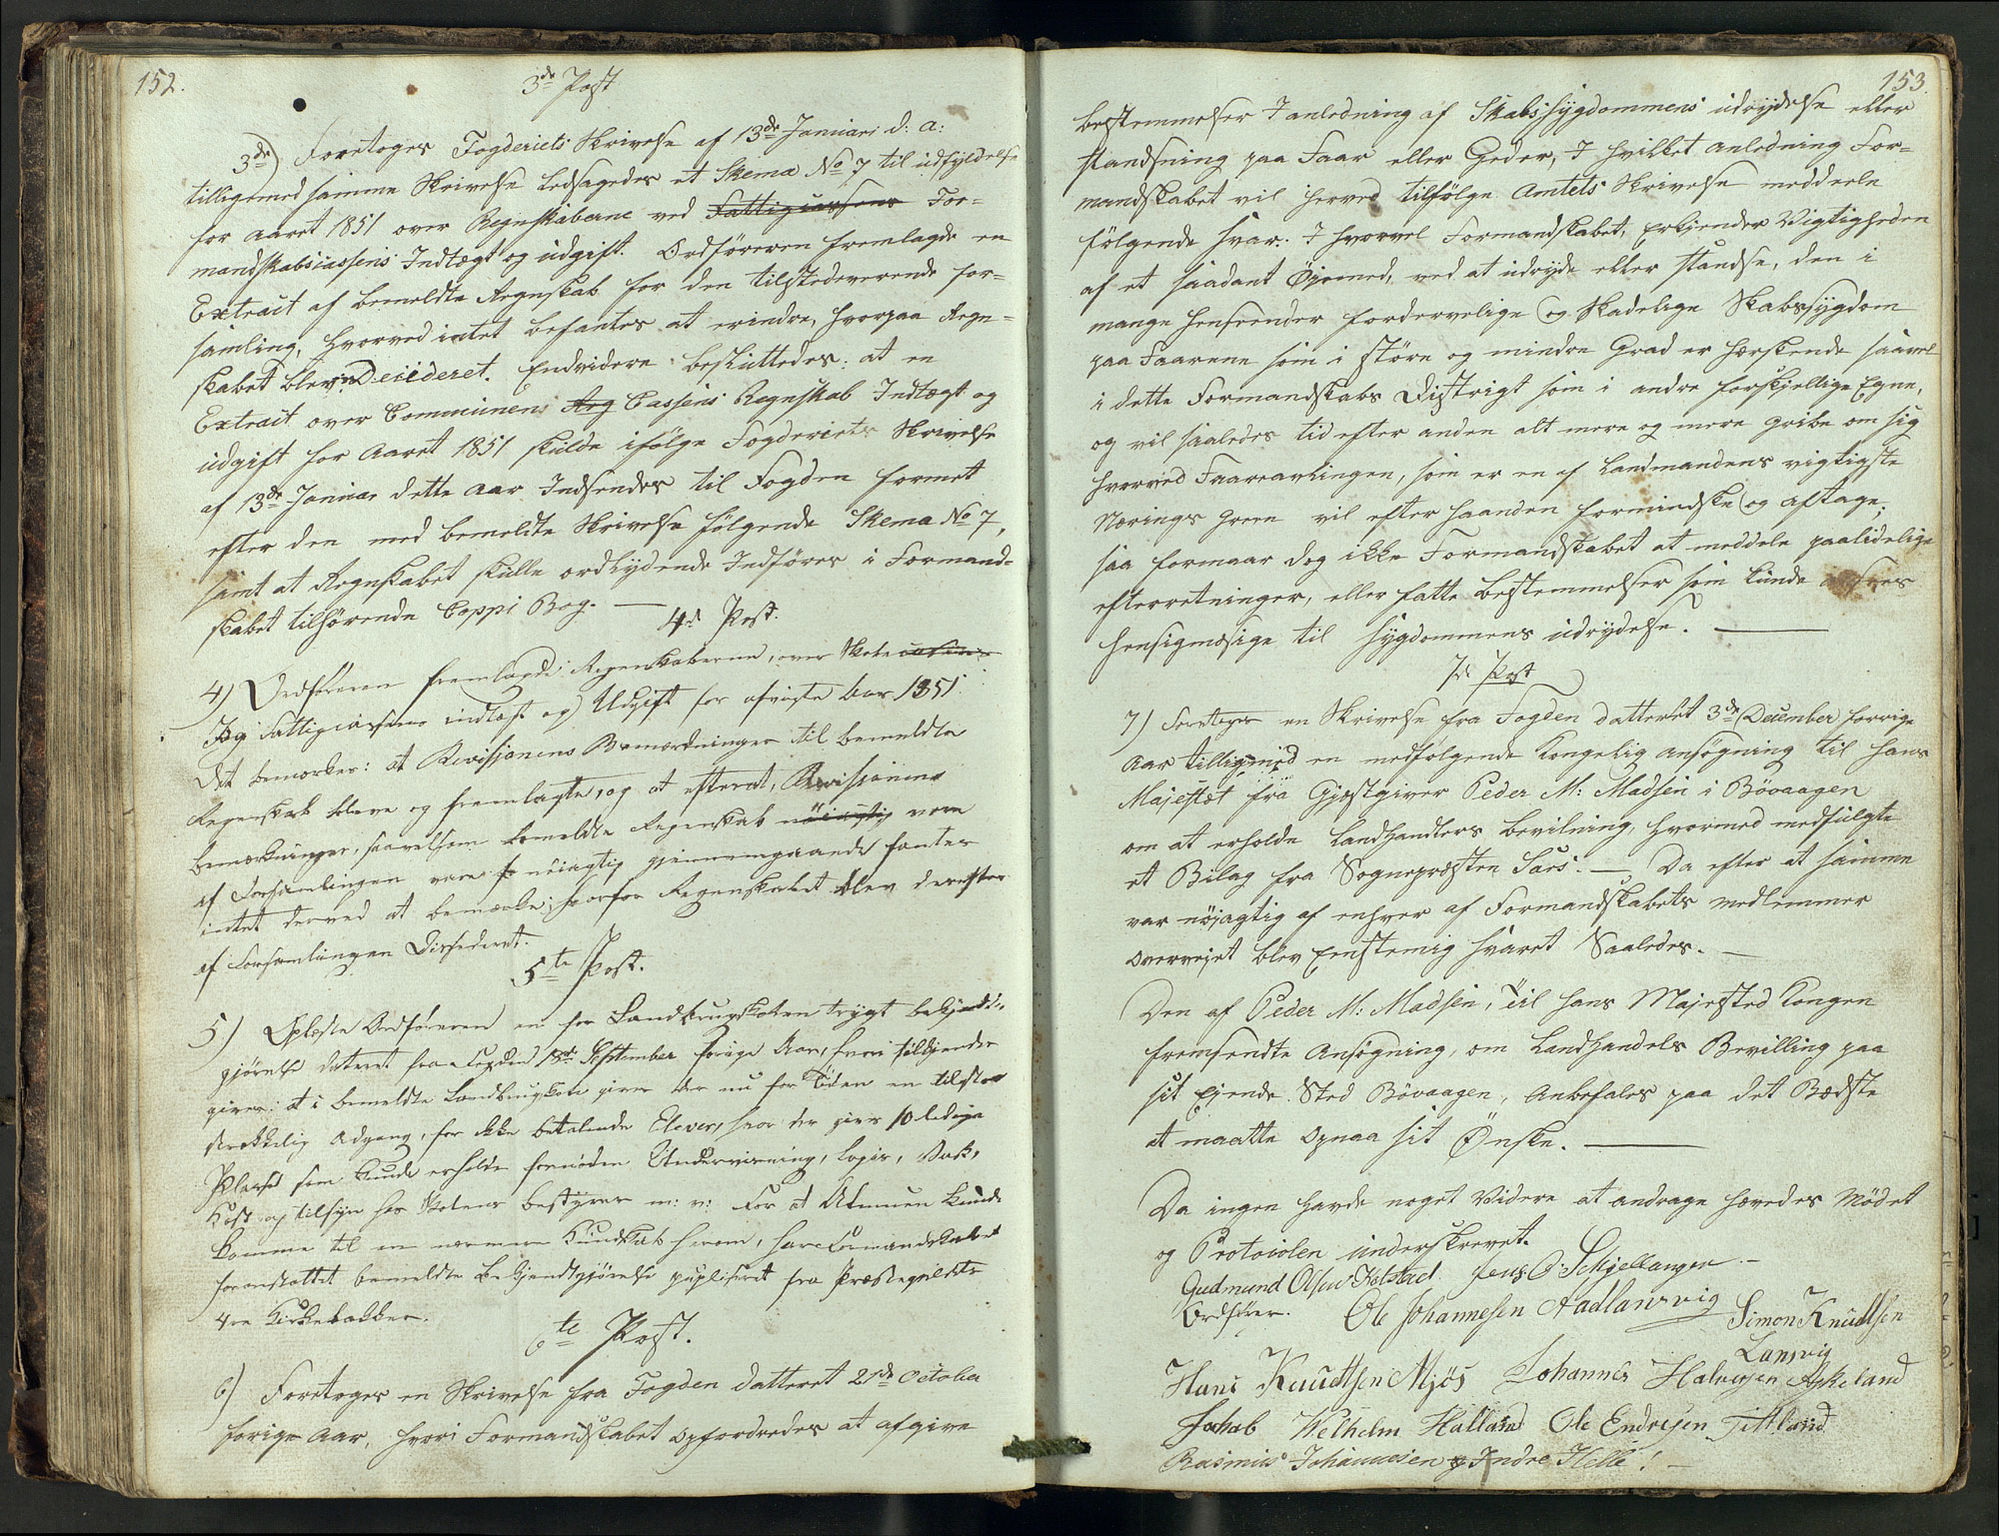 152.
3de Post
3de) Foretoges Fogderiets Skrivelse af 13de Januari d: a:
tilligemed samme Skrivelse ledsagedes et Skema No 7 til udfyldelse
for aaret 1851 over Regnskaberne ved Fattigcassens For=
mandskabscassens Indtægt og udgift. Ordføreren fremlagde en
Extract af bemeldte Regnskab for den tilstedeverende for=
samling, hvorved intet befantes at erindre, hvorpaa Regn=
skabet blev Deciederet. Endvidere besluttedes: at en
Extract over Communens Reg Cassens Regnskab Indtægt og
udgift for Aaret 1851 skulde ifølge Fogderiets Skrivelse
af 13de Januar dette aar Indsendes til Fogden formet
efter den med bemeldte Skrivelse følgende Skema No 7,
samt at Regnskabet skulle ordlydende Indføres i Formand=
skabet tilhørende Coppi Bog. —
4de Post.
4) Ordføreren fremlagde Regenskaberne, over Skole
Fattigcassens indtægt og Udgift for afvigte Aar 1851.
Det bemærkes: at Revisjonens Bemærkninger til bemeldte
Regenskab bleve og fremlagte, og at efterat, Revisjonens
bemærkninger, saavelsom bemeldte Regenskab nöiagtig vare
af Forsamlingen vare nöiagtig gjennemgaaende fantes
intet derved at bemærke; hvorfor Regenskabet blev derefter
af Forsamlingen Desiederet.
5te Post.
5) Oplæste Ordføreren en for Landbrugskolen trygt bekjendt=
gjørelse dateret fra Fogden 18de September forige Aar, hvori tilkjende
gives: at i bemeldte Landbrugskole gives der nu for Tiden en tilstræ
strækkelig Adgang, for ikke betalende Elever, hvor der gives 10 ledige
Pladse som kunde erholde fornøden Undervisning, Logis, Vask,
Kost og tilsyn hos Skolens bestyrer m: v: For at Almuen kunde
komme til en nærmere Kundskab herom, har Formandskabet
foranstaltet bemeldte Bekjendtgjørelse publiseret fra Præstegieldets
4re Kirkebakker.
6te Post.
6) Foretoges en Skrivelse fra Fogden datteret 21de October
forige Aar, hvori Formandskabet opfordredes at afgive
153.
bestemmelser I anledning af Skabssygdommens udrydelse eller
standsning paa Faar eller Geder, I hvilket anledning For=
mandskabet vil herved tilfølge Amtets Skrivelse meddeele
følgende svar: I hvorvel Formandskabet, Erkjender Vigtigheden
af et saadant Øjemed, ved at udryde eller standse, den i
mange henseender fordervelige og Skadelige Skabssygdom
paa Faarene som i större og mindre Grad er herskende saavel
i dette Formandskabs Distrigt som i andre forskjellige Egne,
og vil saaledes tid efter anden alt mere og mere gribe om sig
hvorved Faareavlingen, som er en af Landmandens vigtigste
Nærings green vil efter haanden formindske og aftage;
saa formaar dog ikke Formandskabet at meddele paalidelige
efterretninger, eller fatte bestemmelser som kunde ansees
hensigmæsige til sygdommens udrydelse. —
7de Post
7) Foretoges en Skrivelse fra Fogden datteret 3de December forrige
Aar tilligemed en medfølgende Kongelig ansøgning til Hans
Majestæt fra Gjestgiver Peder M: Madsen i Bövaagen
om at erholde Landhandlers Bevilning, hvormed medfulgte
et Bilag fra Sogneprästen Sars. — Da efter at samme
var nöjagtig af enhver af Formandskabets medlemmer
overvejet blev Eenstemig svaret Saaledes. —
Den af Peder M: Madsen, Til Hans Majested Kongen
fremsendte Ansøgning, om Landhandels Bevilling paa
sit Ejende Sted Bövaagen, Anbefales paa det Bedste
at maatte opnaa sit Ønske. —
Da ingen havde noget Videre at andrage hævedes Mödet
og Protocolen underskrevet.
Gudmund Olsen Kolstad Jens O. Schjellanger —
Ordfører. Ole Johannesen Aadlansvig Simon Knudsen
Lansvig
Hans Knudtsen Mjös Johannes Halvorsen Askeland
Jakob Welhelm Halland Ole Endresen Titland
Rasmus Johannesen Indre Helle! —